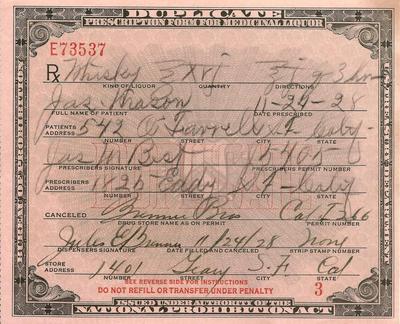 DUPLICATE
PRESCRIPTION FORM FOR MEDICINAL LIQUOR
E73537
Rx Whisky ʒ XVI
KIND OF LIQUOR QUANTITY DIRECTIONS
Jas 11-29-28
FULL NAME OF PATIENT DATE PRESCRIBED
PATIENTS ADDRESS 542 O'Farrell
NUMBER STREET CITY STATE
Jas W 15405
PRESCRIBERS SIGNATURE PRESCRIBERS PERMIT NUMBER
PRESCRIBERS ADDRESS 1825 Eddy
NUMBER STREET CITY STATE
CANCELED Bros Cal
DRUG STORE NAME AS ON PERMIT PERMIT NUMBER
Jules 11/29/28
DISPENSERS SIGNATURE DATE FILLED AND CANCELED STRIP STAMP NUMBER
STORE ADDRESS 1401 Geary S.F. Cal
NUMBER STREET CITY STATE
SEE REVERSE SIDE FOR INSTRUCTIONS
DO NOT REFILL OR TRANSFER UNDER PENALTY 3
ISSUED UNDER AUTHORITY OF THE
NATIONAL PROHIBITION ACT